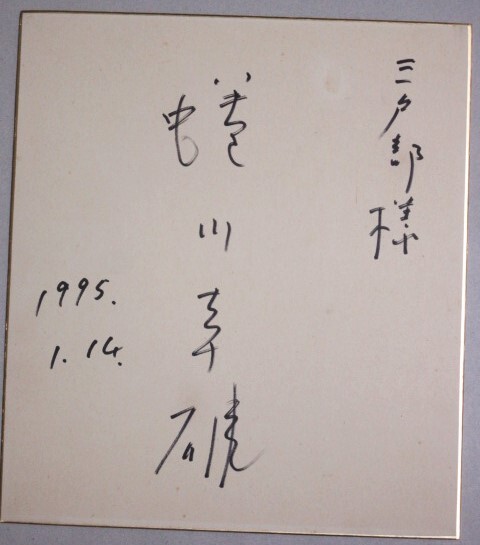 三戸部様
蜷川幸雄
1995.
1.14.